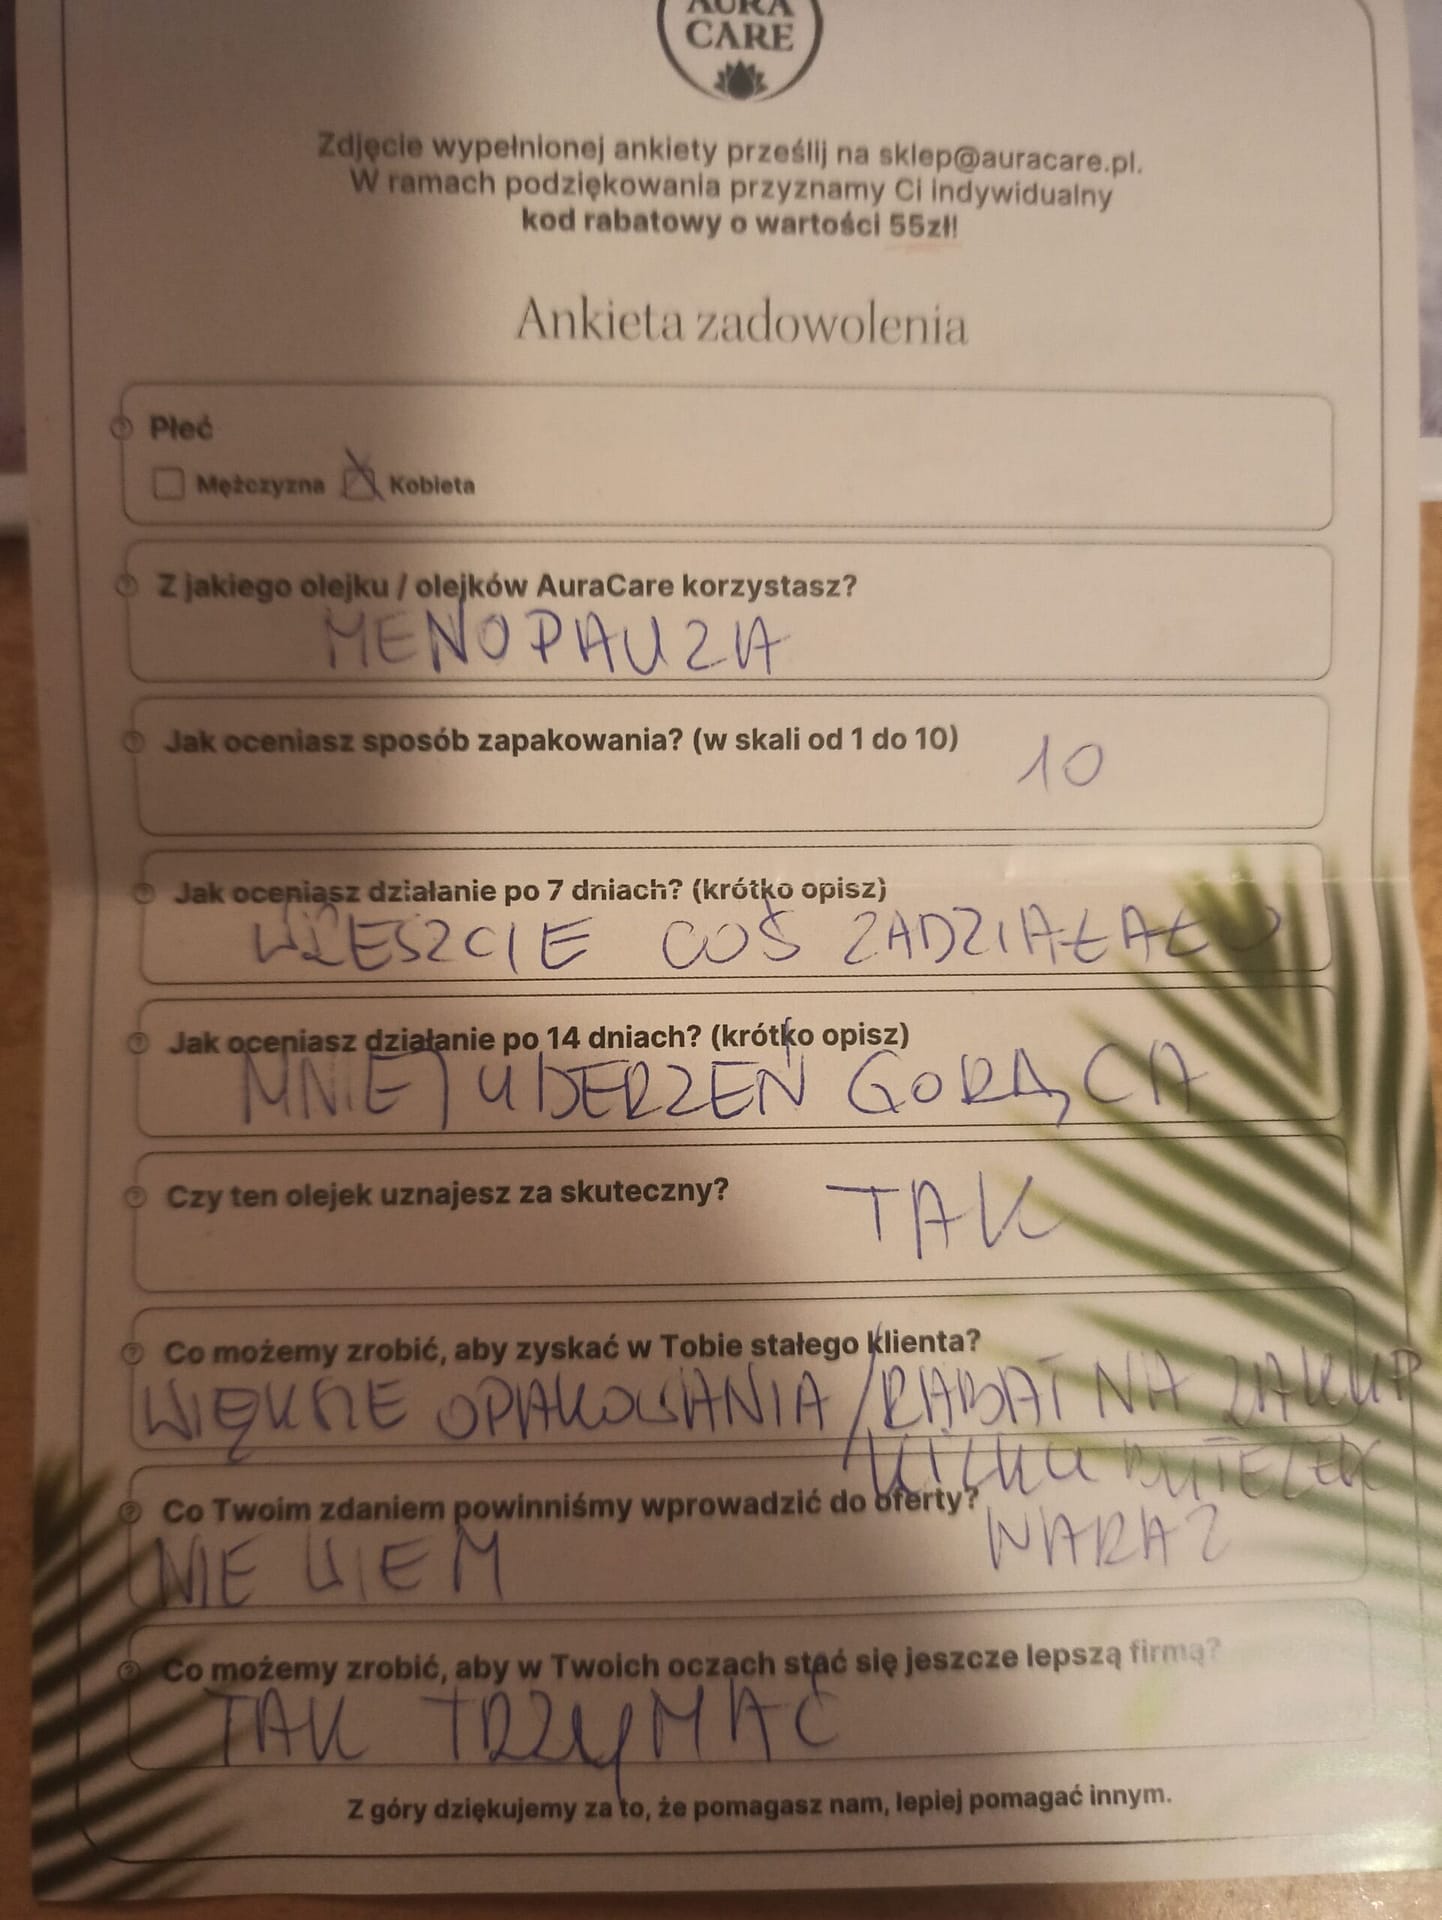 AURA
CARE
Zdjęcie wypełnionej ankiety prześlij na sklep@auracare.pl.
W ramach podziękowania przyznamy Ci indywidualny
kod rabatowy o wartości 55zł!
Ankieta zadowolenia
Płeć
Mężczyzna Kobieta
Z jakiego olejku / olejków AuraCare korzystasz?
MENOPAUZA
Jak oceniasz sposób zapakowania? (w skali od 1 do 10)
10
Jak oceniasz działanie po 7 dniach? (krótko opisz)
WRESZCIE COŚ ZADZIAŁAŁO
Jak oceniasz działanie po 14 dniach? (krótko opisz)
MNIEJ UDERZEŃ GORĄCA
Czy ten olejek uznajesz za skuteczny?
TAK
Co możemy zrobić, aby zyskać w Tobie stałego klienta?
WIĘKSZE OPAKOWANIA / RABAT NA ZAKUP
KILKU BUTELEK
NARAZ
Co Twoim zdaniem powinniśmy wprowadzić do oferty?
NIE WIEM
Co możemy zrobić, aby w Twoich oczach stać się jeszcze lepszą firmą?
TAK TRZYMAĆ
Z góry dziękujemy za to, że pomagasz nam, lepiej pomagać innym.